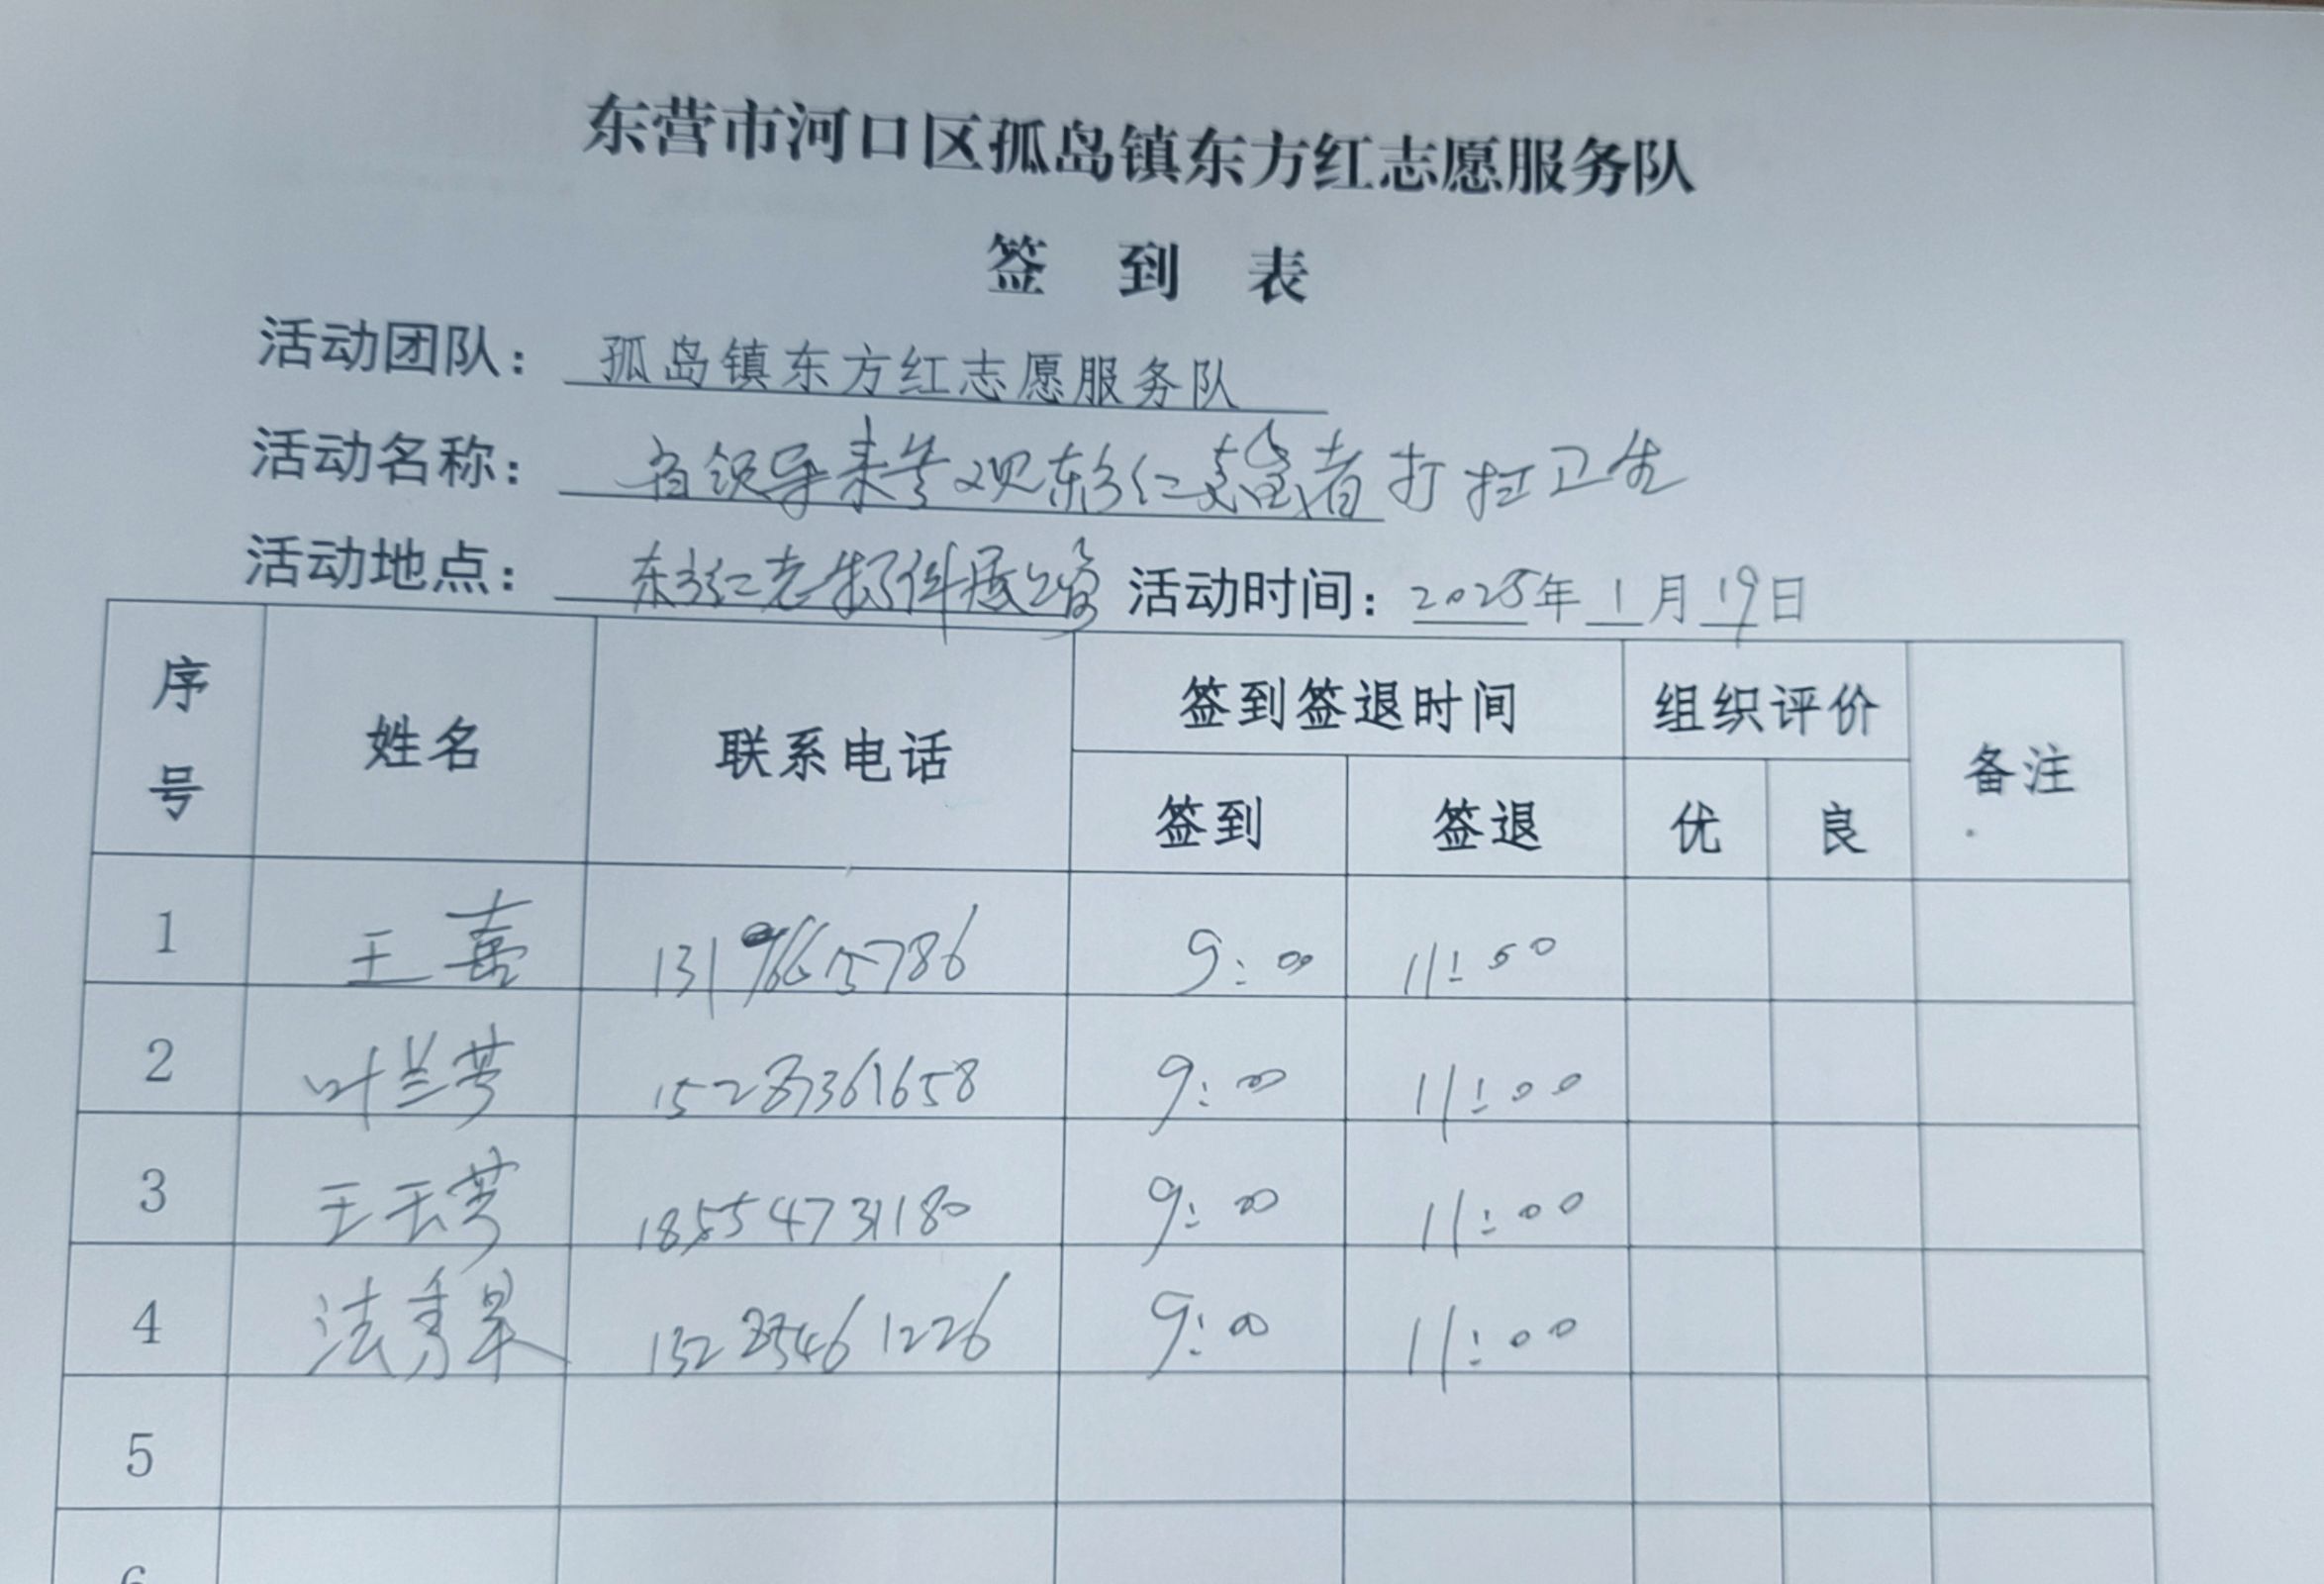 东营市河口区孤岛镇东方红志愿服务队
签 到 表
活动团队: 孤岛镇东方红志愿服务队
活动名称: 省领导来参观东方红 志愿者打扫卫生
活动地点: 东方红老物件展馆 活动时间: 2025年 1 月 19日
序号 姓名 联系电话 签到签退时间 组织评价 备注
签到 签退 优 良
1 王 9:00 11:00
2 叶兰芳 15287361658 9:00 11:00
3 王玉芳 18554731180 9:00 11:00
4 法秀 9:00 11:00
5
6